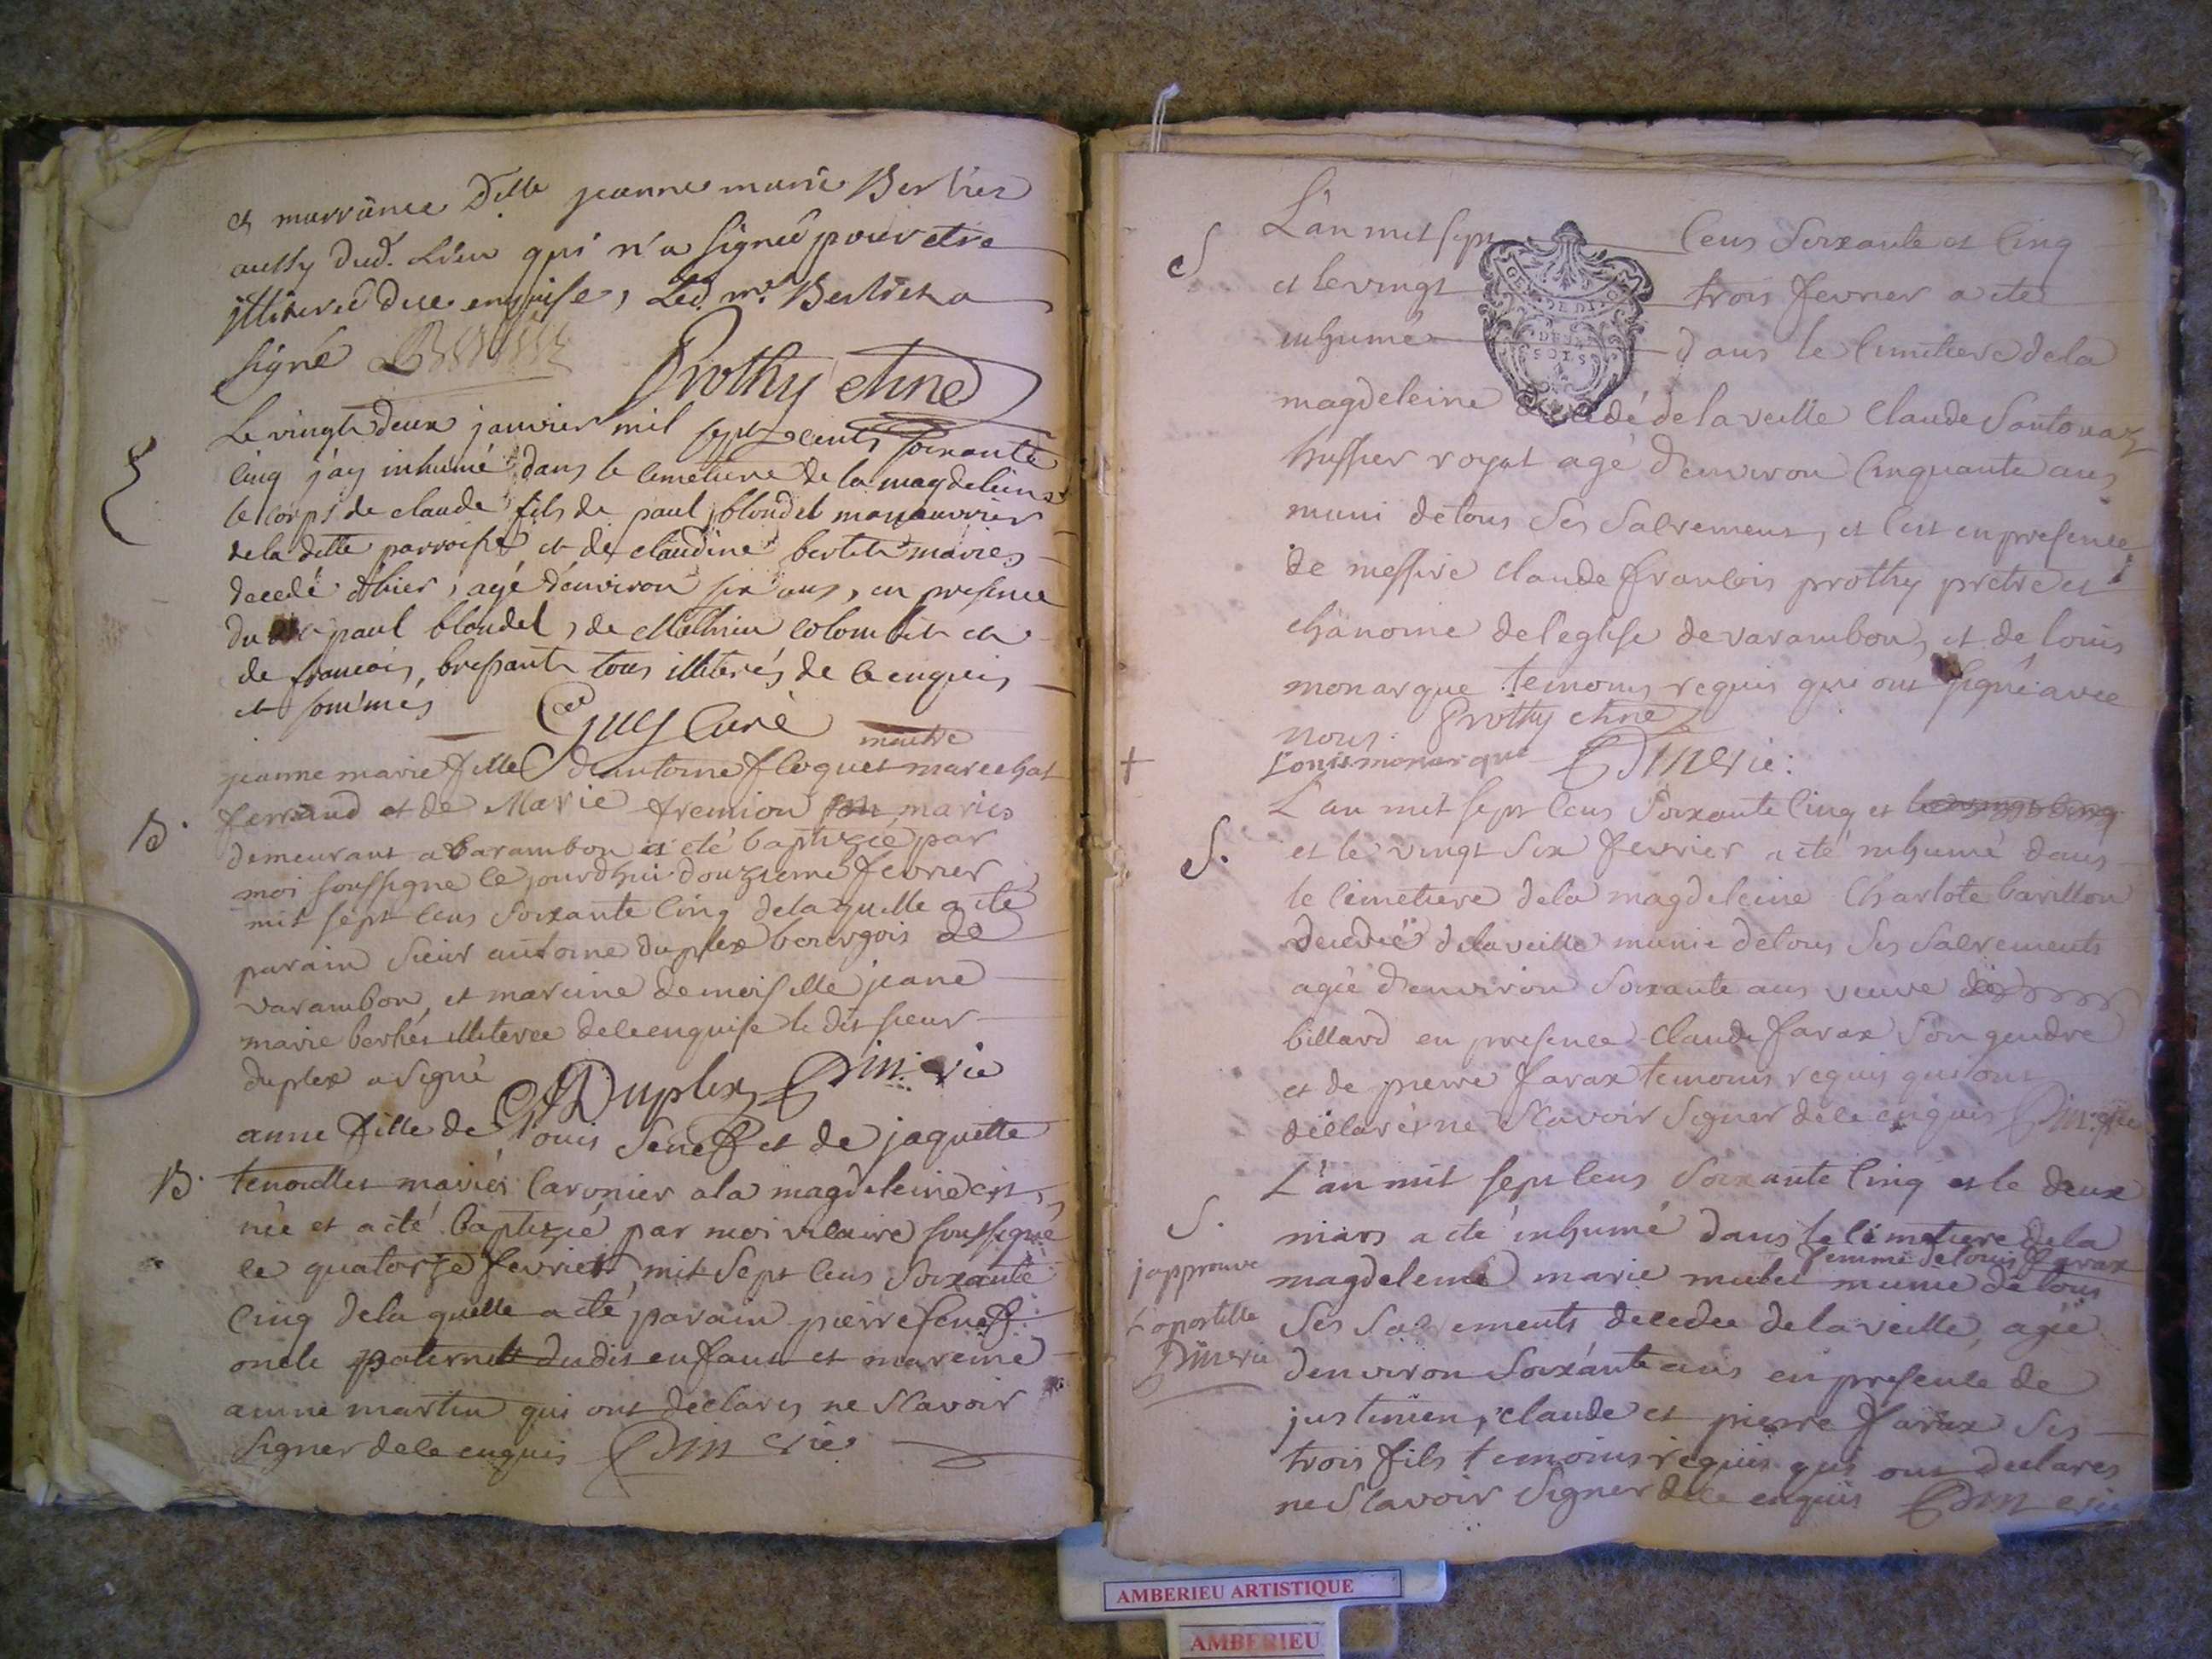 et marrainne Dlle jeanne marie Berlier
aussy dud. Lieu qui n'a signée pour etre
illiterée de ce enquise, Led. mr. Berlier a
signé
Prothy chne
Le vingt deux janvier mil sept cents soixante
cinq j'ay inhumé dans le cemetiere de la magdeleine
le corps de claude fils de paul blondel manouvrier
de la ditte parroisse et de claudine bertet mariés
decedé d'hier, agé d'environ six ans, en presence
du paul blondel, de Mathieu colombet et
de francois bressant tous illiterés de ce enquis
et sommés
Guy Curé
maitre
jeanne marie fille d'antoine floquet marechat
ferrand et de Marie fremion mariés
B.
demeurant a varambon a eté baptizée par
moi soussigne ce jourdhui douzieme fevrier
mil sept cens soixante cinq de laquelle a ete
parain sieur antoine duplex bourgois de
varambon, et mareine demoiselle jeane
marie berlier illiteree de ce enquise le dit sieur
duplex a signé
Duplex Dimerie
anne fille de louis seneff et de jaquette
B.
mariés la magdeleine est
née et a eté baptizée par moi vicaire soussigné
le quatorze fevrier mil sept cens soixante
cinq de la quelle a eté parain pierre seneff
oncle paternel dudit enfant et mareine
anne martin qui ont déclarés ne scavoir
signer de ce enquis Dimerie
S
L'an mil sept cens soixante et cinq
et le vingt trois fevrier a ete
GEN DE DIJON
DEUX
SOLS
inhumé dans le cimetiere de la
magdeleine décedé de la veille Claude Santonaz
huissier royal agé d'environ cinquante ans
muni de tous ses sacremens, et c'est en presence
de messire claude francois prothy pretre et
chanoine de l'eglise de varambon, et de louis
monarque temoins requis qui ont signé avec
nous. Prothy chne
+
Louis monarque Dimerie:
L'an mil sept cens soixante cinq et le vingt cinq
S.
et le vingt six fevrier a eté inhumé dans
le cimetiere de la magdeleine Charlote barillon
decedée de la veille munie de tous ses sacrements
agée d'environ soixante ans veuve de
billard en presence claude farax son gendre
et de pierre farax temoins requis qui ont
déclarés ne scavoir signer de ce enquis Dimerie
L'an mil sept cens soixante cinq et le deux
S.
mars a eté inhumé dans le cimetiere de la
femme de louis farax
japprouve
magdeleine marie munie de tous
L'apostille
ses sacrements decedee de la veille, agée
Dimerie
denviron soixante ans en presence de
justinien, claude et pierre farax ses
trois fils temoins requis qui ont declares
ne scavoir signer de ce enquis Dimerie
AMBERIEU ARTISTIQUE
AMBERIEU